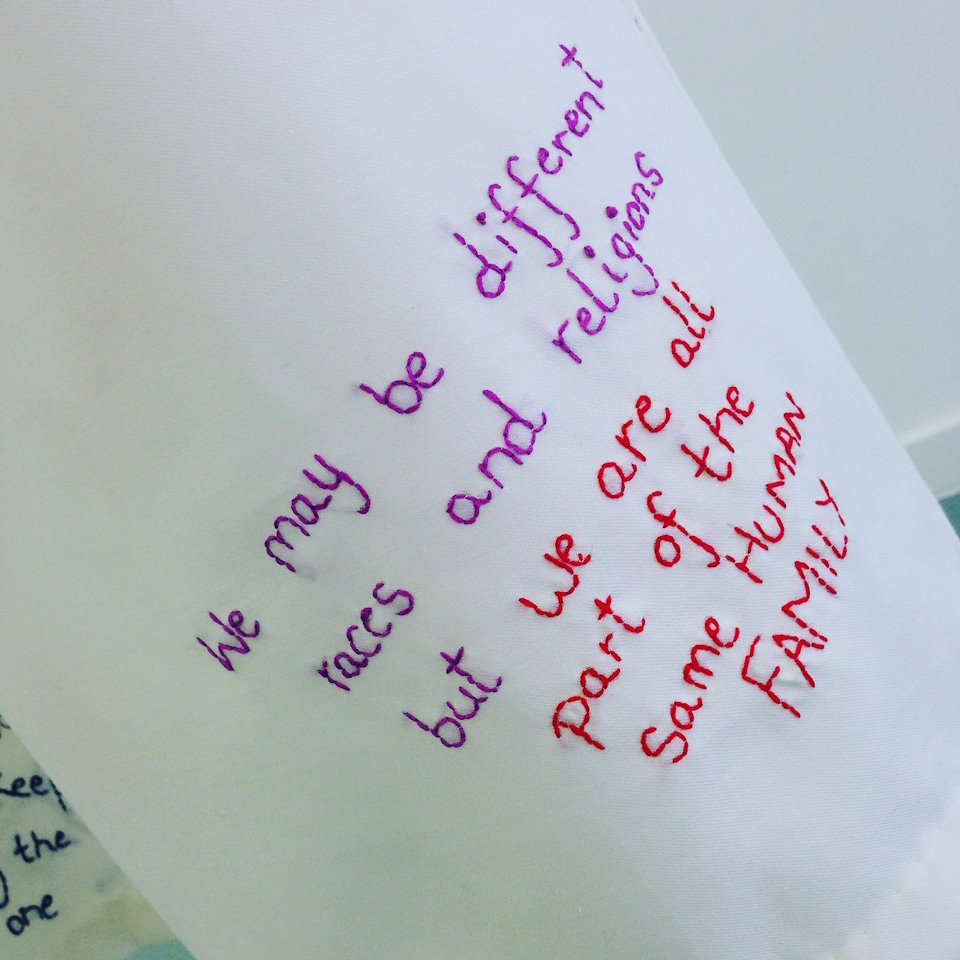 We may be different
races and religions
but we are all
part of the
same HUMAN
FAMILY
the
one